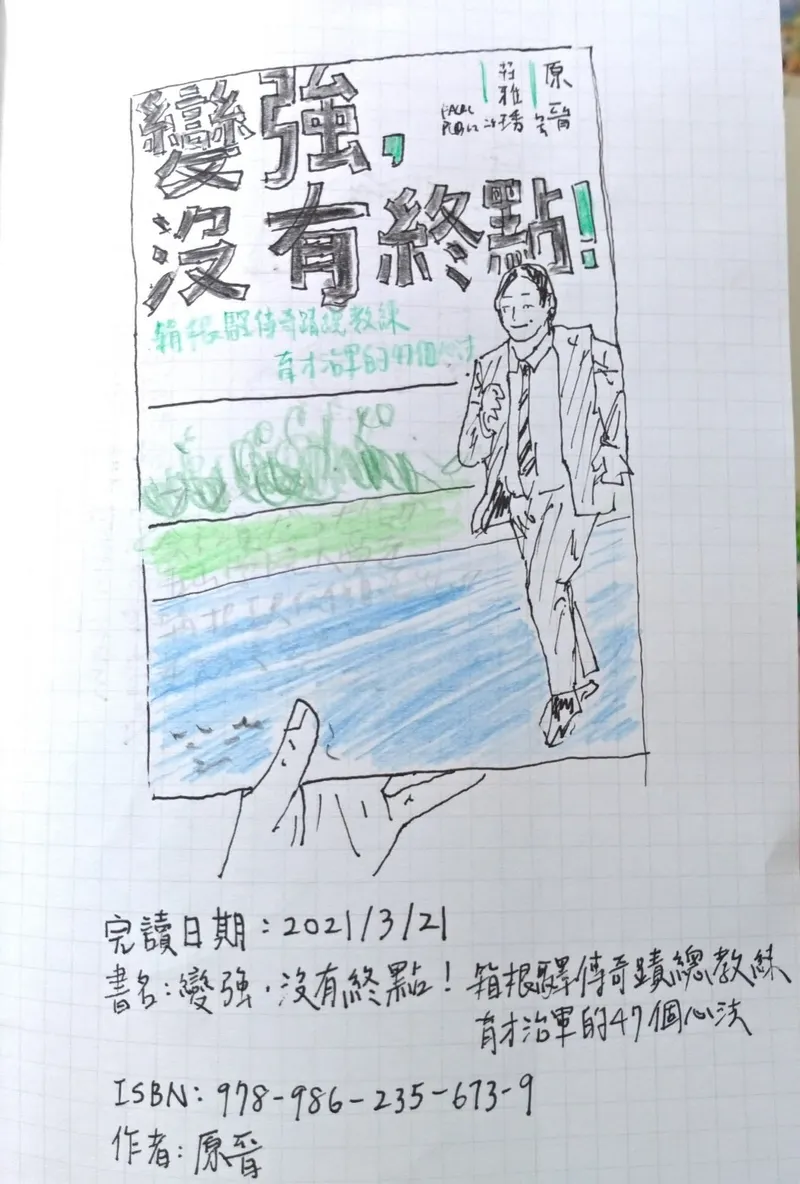 變強,
沒有終點!
原晉 著
莊雅琇 譯
箱根驛傳奇蹟總教練
育才治軍的47個心法
完讀日期:2021/3/21
書名:變強,沒有終點!箱根驛傳奇蹟總教練
育才治軍的47個心法
ISBN:978-986-235-673-9
作者:原晉